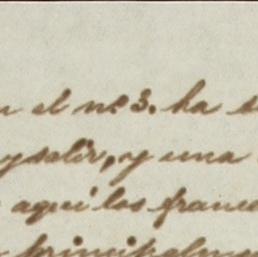 n el nº 3. ha s
y salir, y una
aquí los franc
principalmen